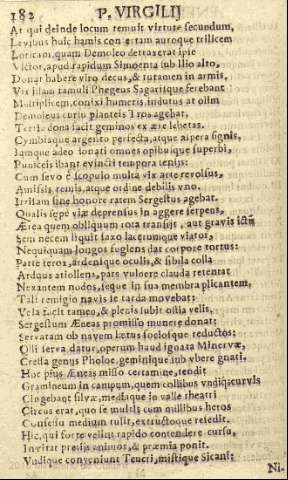 182 P. VIRGILIJ
At qui deinde locum tenuit virtute secundum,
Levibus huic hamis consertam auroque trilicem
Loricam, quam Demoleo detraxerat ipse
Victor, apud rapidum Simoenta sub Ilio alto,
Donat habere viro decus, & tutamen in armis,
Vix illam famuli Phegeus Sagarisque ferebant
Multiplicem, connixi humeris indutus at olim
Demoleus cursu planteis Troas agebat.
Tertia dona facit geminos ex ære lebetas.
Cymbiaque argento perfecta, atque aspera signis,
Iamque adeo donati omnes opibusque superbi,
Puniceis ibant evincti tempora tenijs:
Cum sevo è scopulo multa vix arte revolsus,
Amissis remis, atque ordine debilis vno.
Irrisam sine honore ratem Sergestus agebat.
Qualis sepè viæ deprensus in aggere serpens,
Ærea quem obliquum rota transijt, aut gravis ictu
Sem necem liquit saxo lacerumque viator,
Nequiquam longos fugiens dat corpore tortus:
Parte ferox, ardenique oculis, & sibila colla
Arduus attollens, pars vulnere clauda retentat
Nexantem nodos, seque in sua membra plicantem,
Tali remigio navis se tarda movebat;
Vela facit tamen, & plenis subit ostia velis,
Sergestum Æneas promisso munere donat;
Servatam ob navem lætus sociosque reductos:
Olli serva datur, operum haud ignara Minervæ,
Cressa genus Pholoe, geminique sub vbere gnati.
Hoc pius Æneas misso certamine, tendit
Gramineum in campum, quem collibus vndique curvis
Cingebant silvæ, mediaque in valle theatri
Circus erat, quo se multis cum millibus heros
Consessu medium tulit, extructoque resedit.
Hic, qui forte velint rapido contendere cursu,
Invitat pretijs animos, & præmia ponit.
Vndique conveniunt Teucri, mistique Sicani:
Ni.